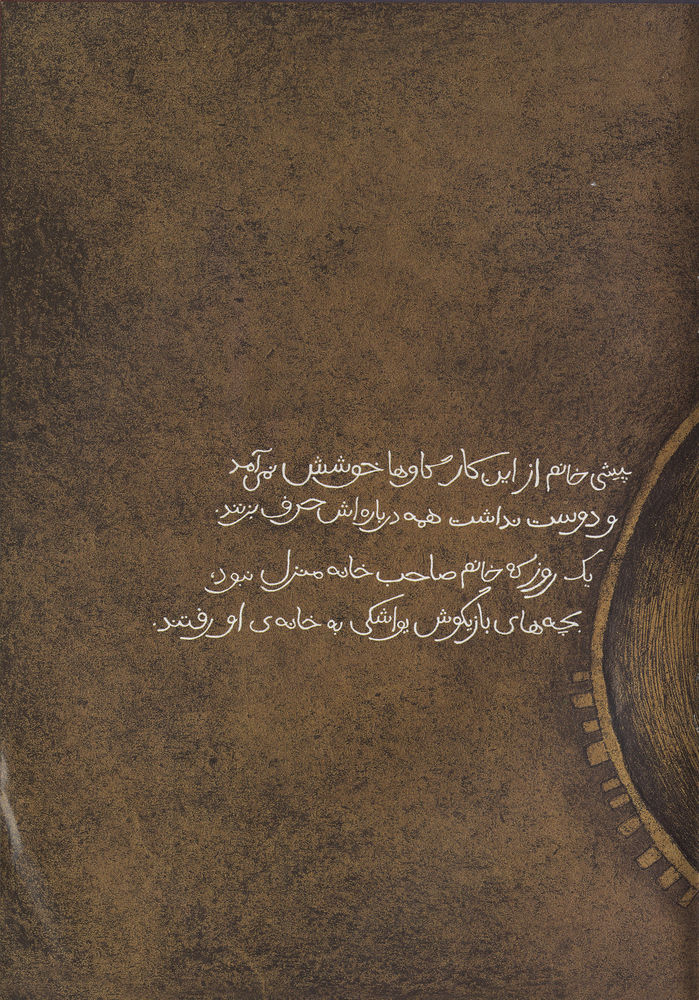 پیشی خانم از این کار گاوها خوشش نمی‌آمد
و دوست نداشت همه درباره‌اش حرف بزنند.
یک روز که خانم صاحب خانه منزل نبود،
بچه‌های بازیگوش یواشکی به خانه‌ی او رفتند.